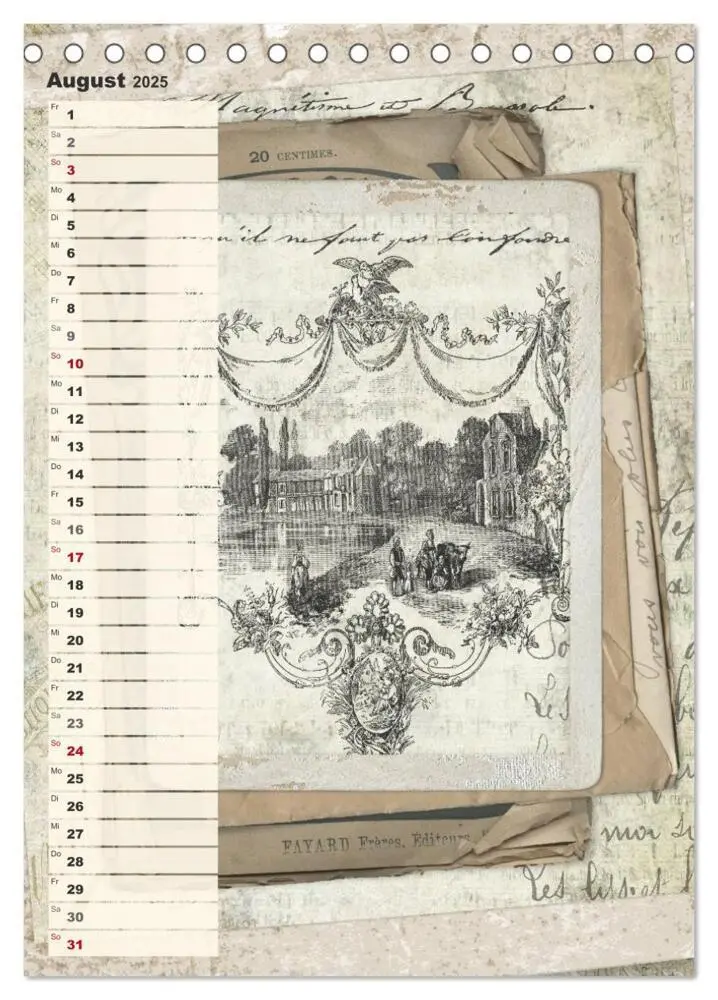 August 2025
Magnétisme et Boussole.
Fr 1
20 CENTIMES.
Sa 2
So 3
Mo 4
Di 5
qu'il ne faut pas confondre
Mi 6
Do 7
Fr 8
Sa 9
So 10
Mo 11
Di 12
Mi 13
Do 14
Fr 15
Sa 16
So 17
Mo 18
Di 19
Mi 20
Do 21
Fr 22
Sa 23
So 24
Mo 25
Di 26
Mi 27
FAYARD Frères, Éditeurs
Do 28
Fr 29
Sa 30
So 31
vous voir plus
Les
moi
Les lits et